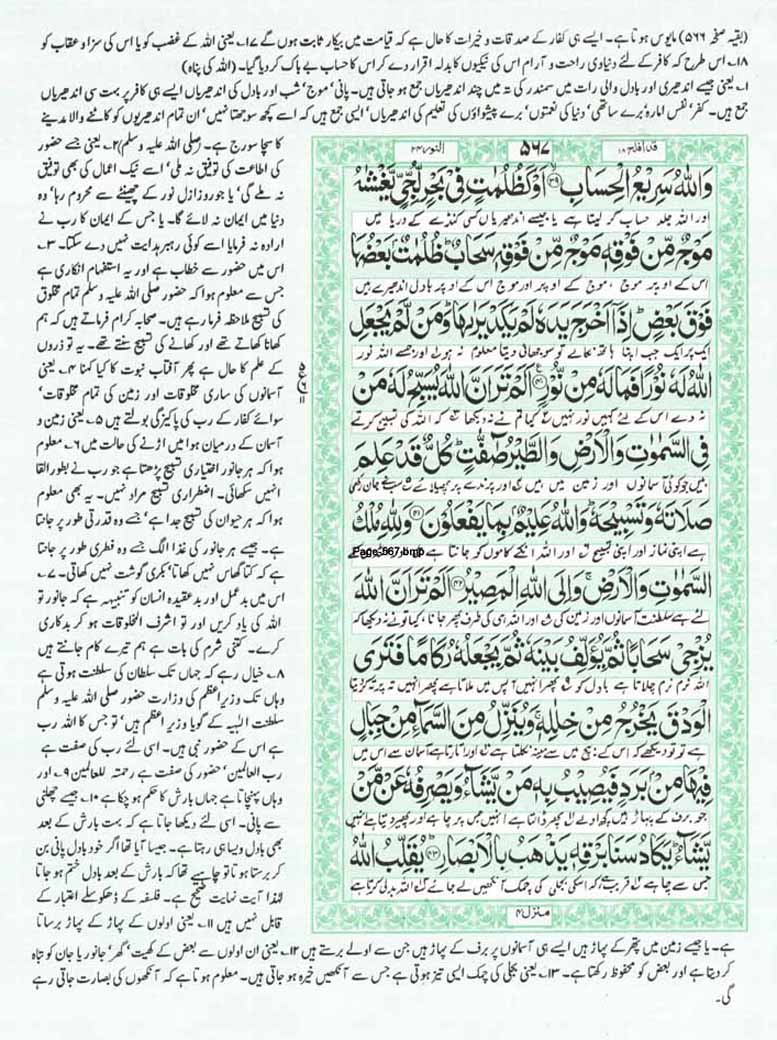 (بقیہ صفحہ ۵۶۶) مایوس ہوتا ہے۔ ایسے ہی کفار کے صدقات و خیرات کا حال ہے کہ قیامت میں بیکار ثابت ہوں گے ۱۷؎ یعنی اللہ کے غضب کو یا اس کی سزا و عقاب کو
۱۸؎ اس طرح کہ کافر کے لئے دنیاوی راحت و آرام اس کی نیکیوں کا بدلہ اقرار دے کر اس کا حساب بے باک کر دیا گیا۔ (اللہ کی پناہ)
۱؎ یعنی جیسے اندھیری اور بادل والی رات میں سمندر کی تہ میں چند اندھیریاں جمع ہو جاتی ہیں۔ پانی' موج' شب اور بادل کی اندھیریاں ایسے ہی کافر پر بہت سی اندھیریاں
جمع ہیں۔ کفر' نفس امارہ' برے ساتھی' دنیا کی نعمتوں' برے پیشواؤں کی تعلیم کی اندھیریاں' ایسی جمع ہیں کہ اسے کچھ سوجھتا نہیں' ان تمام اندھیریوں کو کاٹنے والا مدینے
کا سچا سورج ہے۔ صلی اللہ علیہ وسلم ۲؎ یعنی جسے حضور
کی اطاعت کی توفیق نہ ملی' اسے نیک اعمال کی بھی توفیق
نہ ملے گی' یا جو روز ازل نور کے چھینٹے سے محروم رہا' وہ
دنیا میں ایمان نہ لائے گا۔ یا جس کے ایمان کا رب نے
ارادہ نہ فرمایا اسے کوئی رہبر ہدایت نہیں دے سکتا۔ ۳؎
اس میں حضور سے خطاب ہے اور یہ استفہام انکاری ہے
جس سے معلوم ہوا کہ حضور صلی اللہ علیہ وسلم تمام مخلوق
کی تسبیح ملاحظہ فرما رہے ہیں۔ صحابہ کرام فرماتے ہیں کہ ہم
کھانا کھاتے تھے اور کھانے کی تسبیح سنتے تھے۔ یہ تو ذروں
کے علم کا حال ہے پھر آفتاب نبوت کا کیا کہنا ۴؎ یعنی
آسمانوں کی ساری مخلوقات اور زمین کی تمام مخلوقات'
سوائے کفار کے رب کی پاکیزگی بولتے ہیں ۵؎ یعنی زمین و
آسمان کے درمیان ہوا میں اڑنے کی حالت میں ۶؎ معلوم
ہوا کہ ہر جانور اختیاری تسبیح پڑھتا ہے جو رب نے بطور القا
انہیں سکھائی۔ اضطراری تسبیح مراد نہیں۔ یہ بھی معلوم
ہوا کہ ہر حیوان کی تسبیح جدا ہے' جسے وہ قدرتی طور پر جانتا
ہے۔ جیسے ہر جانور کی غذا الگ جسے وہ فطری طور پر جانتا
ہے کہ کتا گھاس نہیں کھاتا' بکری گوشت نہیں کھاتی۔ ۷؎
اس میں بدعمل اور بدعقیدہ انسان کو تنبیہہ ہے کہ جانور تو
اللہ کی یاد کریں اور تو اشرف المخلوقات ہو کر بدکاری
کرے۔ کتنی شرم کی بات ہے ہم تیرے کام جانتے ہیں
۸؎ خیال رہے کہ جہاں تک سلطان کی سلطنت ہوتی ہے
وہاں تک وزیر اعظم کی وزارت حضور صلی اللہ علیہ وسلم
سلطنت الہیہ کے گویا وزیر اعظم ہیں' تو جس کا اللہ رب
ہے اس کے حضور نبی ہیں۔ اسی لئے رب کی صفت ہے
رب العالمین' حضور کی صفت ہے رحمتہ للعالمین ۹؎ اور
وہاں پہنچاتا ہے جہاں بارش کا حکم ہو چکا ہے ۱۰؎ جیسے چھلنی
سے پانی۔ اسی لئے دیکھا جاتا ہے کہ بہت بارش کے بعد
بھی بادل ویسا ہی رہتا ہے۔ جیسا آیا تھا اگر خود بادل پانی بن
کر برستا ہوتا تو چاہیے تھا کہ بارش کے بعد بادل ختم ہو جاتا
لہذا آیت نہایت صحیح ہے۔ فلسفہ کے ڈھکوسلے اعتبار کے
قابل نہیں ہیں ۱۱؎ یعنی اولوں کے پہاڑ کے پہاڑ برساتا
قد افلح ۱۸
۵۶۷
النور ۲۴
وَاللّٰهُ سَرِيْعُ الْحِسَابِ ۝۳۹ اَوْ كَظُلُمٰتٍ فِيْ بَحْرٍ لُّجِّيٍّ يَّغْشٰىهُ
اور اللہ جلد حساب کر لیتا ہے یا جیسے اندھیریاں کسی کنڈے کے دریا میں
مَوْجٌ مِّنْ فَوْقِهٖ مَوْجٌ مِّنْ فَوْقِهٖ سَحَابٌ ؕ ظُلُمٰتٌۢ بَعْضُهَا
اس کے اوپر موج ، موج کے اوپر اور موج اس کے اوپر بادل اندھیرے ہیں
فَوْقَ بَعْضٍ ؕ اِذَاۤ اَخْرَجَ يَدَهٗ لَمْ يَكَدْ يَرٰىهَا ؕ وَمَنْ لَّمْ يَجْعَلِ
ایک پر ایک جب اپنا ہاتھ نکالے تو سوجھائی دیتا معلوم نہ ہو اور جسے اللہ نور
اللّٰهُ لَهٗ نُوْرًا فَمَا لَهٗ مِنْ نُّوْرٍ ۝۴۰ اَلَمْ تَرَ اَنَّ اللّٰهَ يُسَبِّحُ لَهٗ مَنْ
نہ دے اس کے لئے کہیں نور نہیں کیا تم نے نہ دیکھا کہ اللہ کی تسبیح کرتے
فِي السَّمٰوٰتِ وَالْاَرْضِ وَالطَّيْرُ صٰٓفّٰتٍ ؕ كُلٌّ قَدْ عَلِمَ
ہیں جو کوئی آسمانوں اور زمین میں ہیں اور پرندے پر پھیلائے سب نے جان رکھی
صَلَاتَهٗ وَتَسْبِيْحَهٗ ؕ وَاللّٰهُ عَلِيْمٌۢ بِمَا يَفْعَلُوْنَ ۝۴۱ وَلِلّٰهِ مُلْكُ
ہے اپنی نماز اور اپنی تسبیح اور اللہ انکے کاموں کو جانتا ہے اور اللہ ہی کے
Page 567.bmp
السَّمٰوٰتِ وَالْاَرْضِ ۚ وَاِلَى اللّٰهِ الْمَصِيْرُ ۝۴۲ اَلَمْ تَرَ اَنَّ اللّٰهَ
لئے ہے سلطنت آسمانوں اور زمین کی اور اللہ ہی کی طرف پھر جانا ، کیا تو نے نہ دیکھا کہ
يُزْجِيْ سَحَابًا ثُمَّ يُؤَلِّفُ بَيْنَهٗ ثُمَّ يَجْعَلُهٗ رُكَامًا فَتَرَى
اللہ نرم نرم چلاتا ہے بادل کو پھر انہیں آپس میں ملاتا ہے پھر انہیں تہ پر تہ کر دیتا
الْوَدْقَ يَخْرُجُ مِنْ خِلٰلِهٖ ۚ وَيُنَزِّلُ مِنَ السَّمَآءِ مِنْ جِبَالٍ
ہے تو تو دیکھے کہ اس کے بیچ میں سے مینہ نکلتا ہے اور اتارتا ہے آسمان سے اس میں
فِيْهَا مِنْۢ بَرَدٍ فَيُصِيْبُ بِهٖ مَنْ يَّشَآءُ وَيَصْرِفُهٗ عَنْ مَّنْ
جو برف کے پہاڑ ہیں کچھ اولے پھر ڈالتا ہے انہیں جس پر چاہے اور پھیر دیتا ہے انہیں
يَّشَآءُ ؕ يَكَادُ سَنَا بَرْقِهٖ يَذْهَبُ بِالْاَبْصَارِ ۝۴۳ يُقَلِّبُ اللّٰهُ
جس سے چاہے قریب ہے کہ اسکی بجلی کی چمک آنکھیں لے جائے اللہ بدلی کرتا ہے
منزل ۴
ہے۔ یا جیسے زمین میں پتھر کے پہاڑ ہیں ایسے ہی آسمانوں پر برف کے پہاڑ ہیں جن سے اولے برستے ہیں ۱۲؎ یعنی ان اولوں سے بعض کے کھیت' گھر' جانور یا جان کو تباہ
کر دیتا ہے اور بعض کو محفوظ رکھتا ہے۔ ۱۳؎ یعنی بجلی کی چمک ایسی تیز ہوتی ہے جس سے آنکھیں خیرہ ہو جاتی ہیں۔ معلوم ہوتا ہے کہ آنکھوں کی بصارت جاتی رہے
گی۔